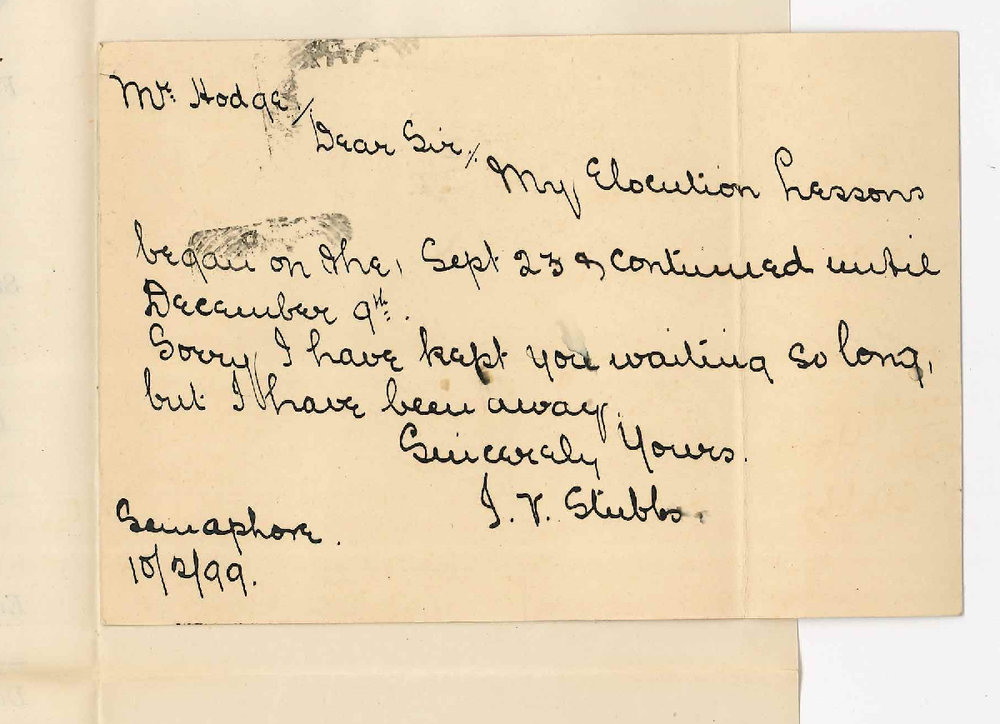 Mr. Hodge/
Dear Sir,/
My Elocution Lessons
began on the, Sept 23 & continued until
December 9th.
Sorry I have kept you waiting so long,
but I have been away.
Sincerely Yours.
J. V. Stubbs.
Semaphore.
10/2/99.